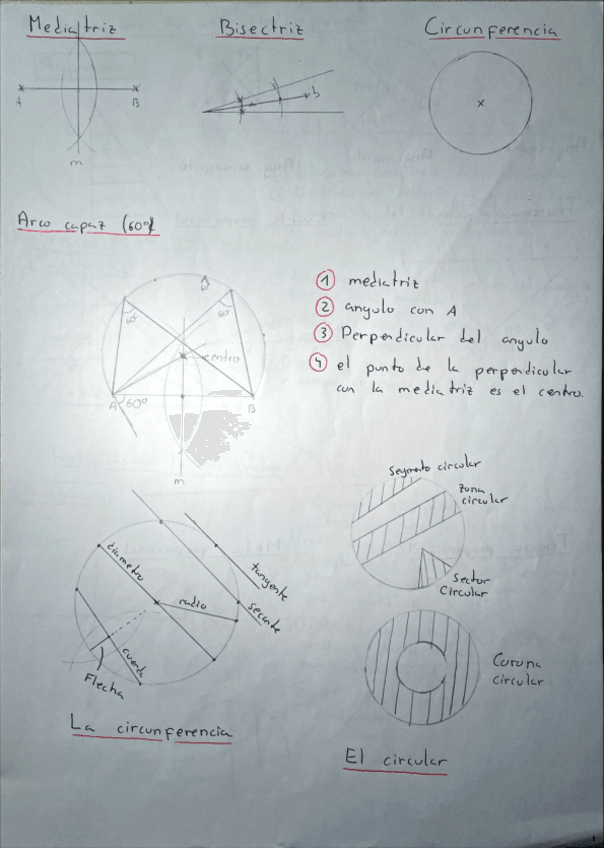 Mediatriz
Bisectriz
Circunferencia
A
B
m
b
Arco capaz (60º)
60º
60º
60º
centro
A
60º
B
m
1 mediatriz
2 angulo con A
3 Perpendicular del angulo
4 el punto de la perpendicular
con la mediatriz es el centro.
segmento circular
zona
circular
sector
Circular
diametro
radio
tangente
secante
cuerda
Flecha
Corona
circular
La circunferencia
El circular